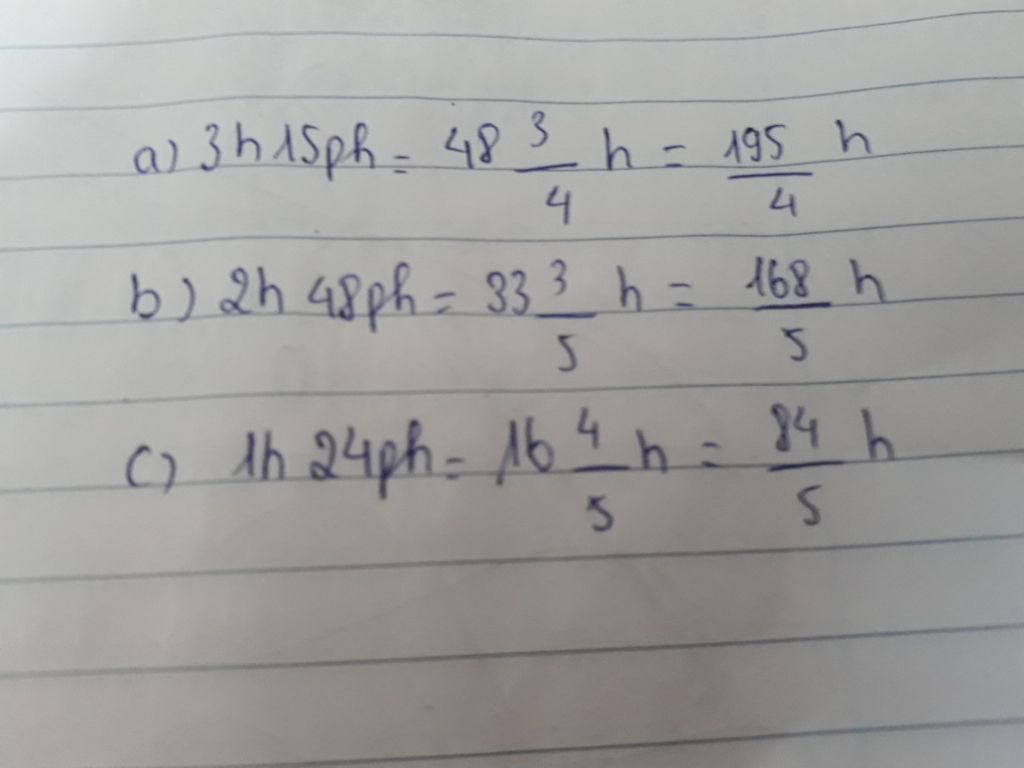 a) 3h 15ph = 48 3/4 h = 195/4 h
b) 2h 48ph = 33 3/5 h = 168/5 h
c) 1h 24ph = 16 4/5 h = 84/5 h